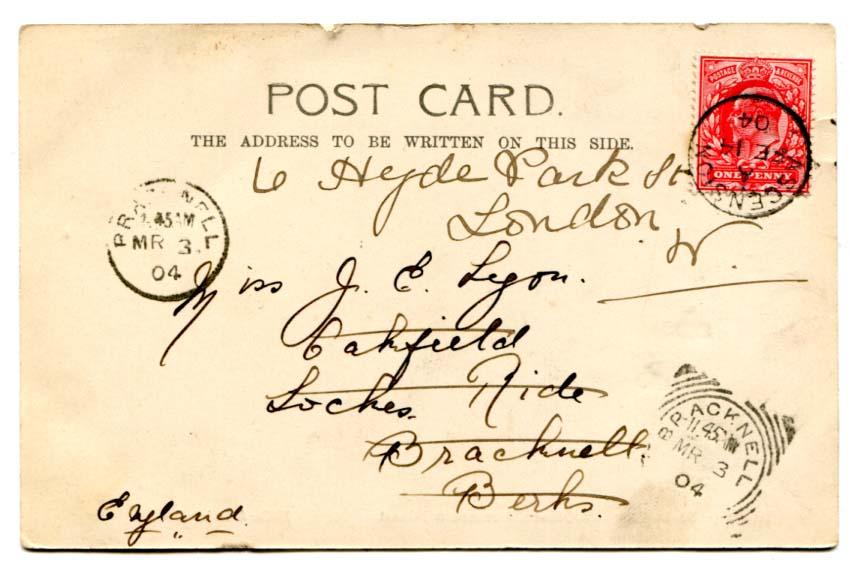 POST CARD.
THE ADDRESS TO BE WRITTEN ON THIS SIDE.
POSTAGE & REVENUE
ONE PENNY
ASCENSION
A
FE 14
04
6 Hyde Park St
London.
W.
BRACKNELL
11.45AM
MR 3
04
Miss J. E. Lyon.
Oakfield
Loches Ride
Bracknell
Berks.
England
BRACKNELL
11.45AM
MR 3
04